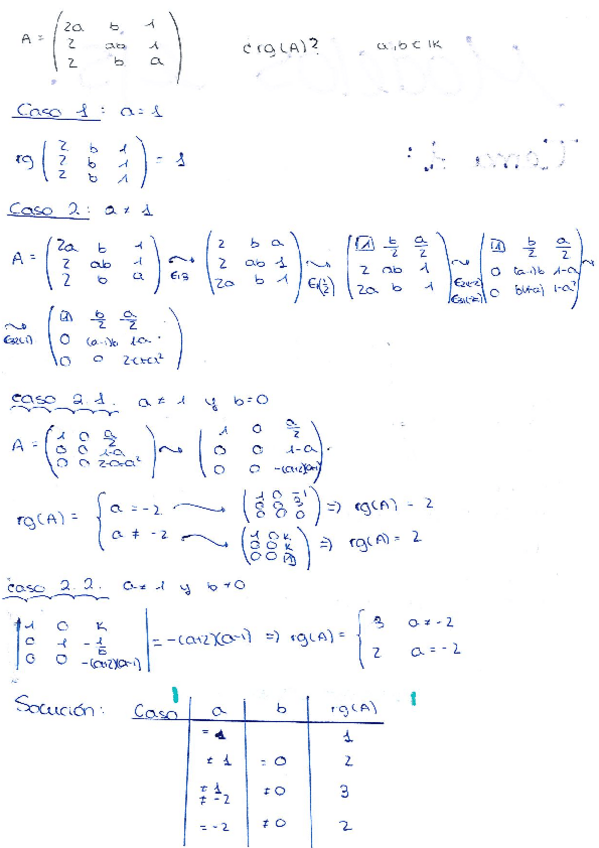 A = ( 2a b 1 / 2 ab 1 / 2 b a ) ¿rg(A)? a,b ∈ IK
Caso 1: a = 1
rg ( 2 b 1 / 2 b 1 / 2 b 1 ) = 1
Caso 2: a ≠ 1
A = ( 2a b 1 / 2 ab 1 / 2 b a ) ~ E13 ( 2 b a / 2 ab 1 / 2a b 1 ) ~ E1(1/2) ( 1 b/2 a/2 / 2 ab 1 / 2a b 1 ) ~ E21(-2) ( 1 b/2 a/2 / 0 (a-1)b 1-a / 0 b(1-a) 1-a² ) ~
~ E32(1) ( 1 b/2 a/2 / 0 (a-1)b 1-a / 0 0 2-a-a² )
caso 2.1. a ≠ 1 y b = 0
A = ( 1 0 a/2 / 0 0 1-a / 0 0 2-a-a² ) ~ ( 1 0 a/2 / 0 0 1-a / 0 0 -(a+2)(a-1) )
rg(A) = { a = -2 → ( 1 0 -1 / 0 0 3 / 0 0 0 ) ⇒ rg(A) = 2
a ≠ -2 → ( 1 0 K / 0 0 K / 0 0 1 ) ⇒ rg(A) = 2
caso 2.2. a ≠ 1 y b ≠ 0
| 1 0 K / 0 1 -1/b / 0 0 -(a+2)(a-1) | = -(a+2)(a-1) ⇒ rg(A) = { 3 a ≠ -2
2 a = -2
Solución: Caso a b rg(A)
= 1 1
≠ 1 = 0 2
≠ 1 ≠ -2 ≠ 0 3
= -2 ≠ 0 2